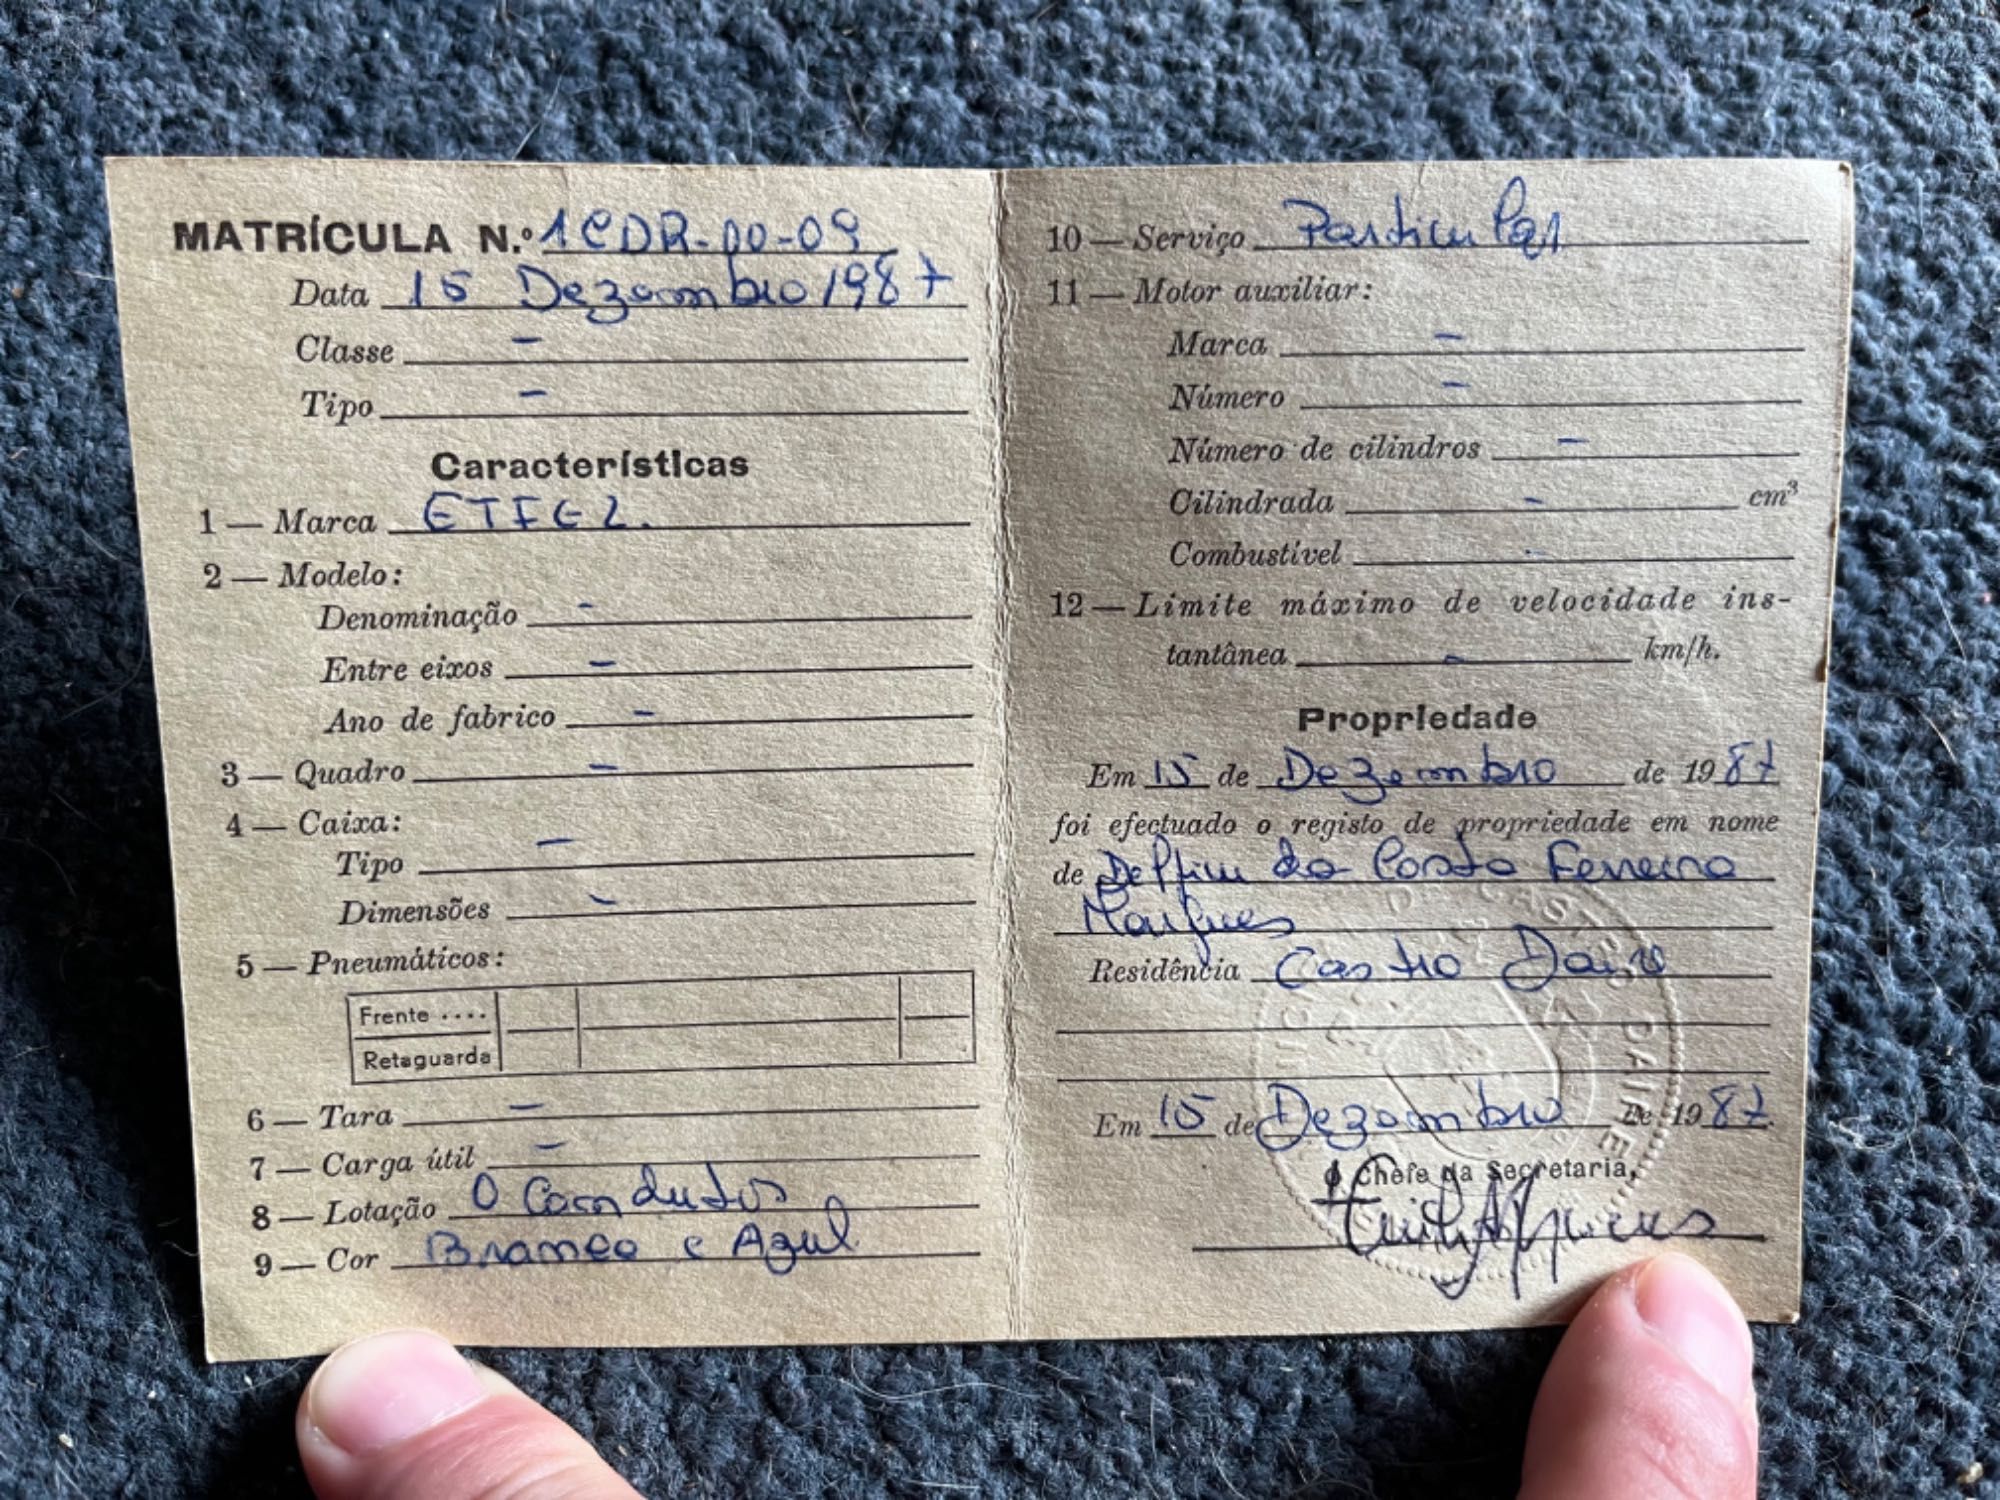 MATRÍCULA N.º 1CDR-00-09
Data 15 Dezembro 1987
Classe -
Tipo -
Características
1 — Marca ETFEL.
2 — Modelo:
Denominação -
Entre eixos -
Ano de fabrico -
3 — Quadro -
4 — Caixa:
Tipo -
Dimensões -
5 — Pneumáticos:
Frente ....
Retaguarda
6 — Tara -
7 — Carga útil -
8 — Lotação O Condutor
9 — Cor Branco e Azul
10 — Serviço Particular
11 — Motor auxiliar:
Marca -
Número -
Número de cilindros -
Cilindrada - cm³
Combustível -
12 — Limite máximo de velocidade ins-
tantânea - km/h.
Propriedade
Em 15 de Dezembro de 1987
foi efectuado o registo de propriedade em nome
de Delfim da Costa Ferreira
Marques
Residência Castro Daire
Em 15 de Dezembro de 1987
O Chefe da Secretaria,
CASTRO DAIRE